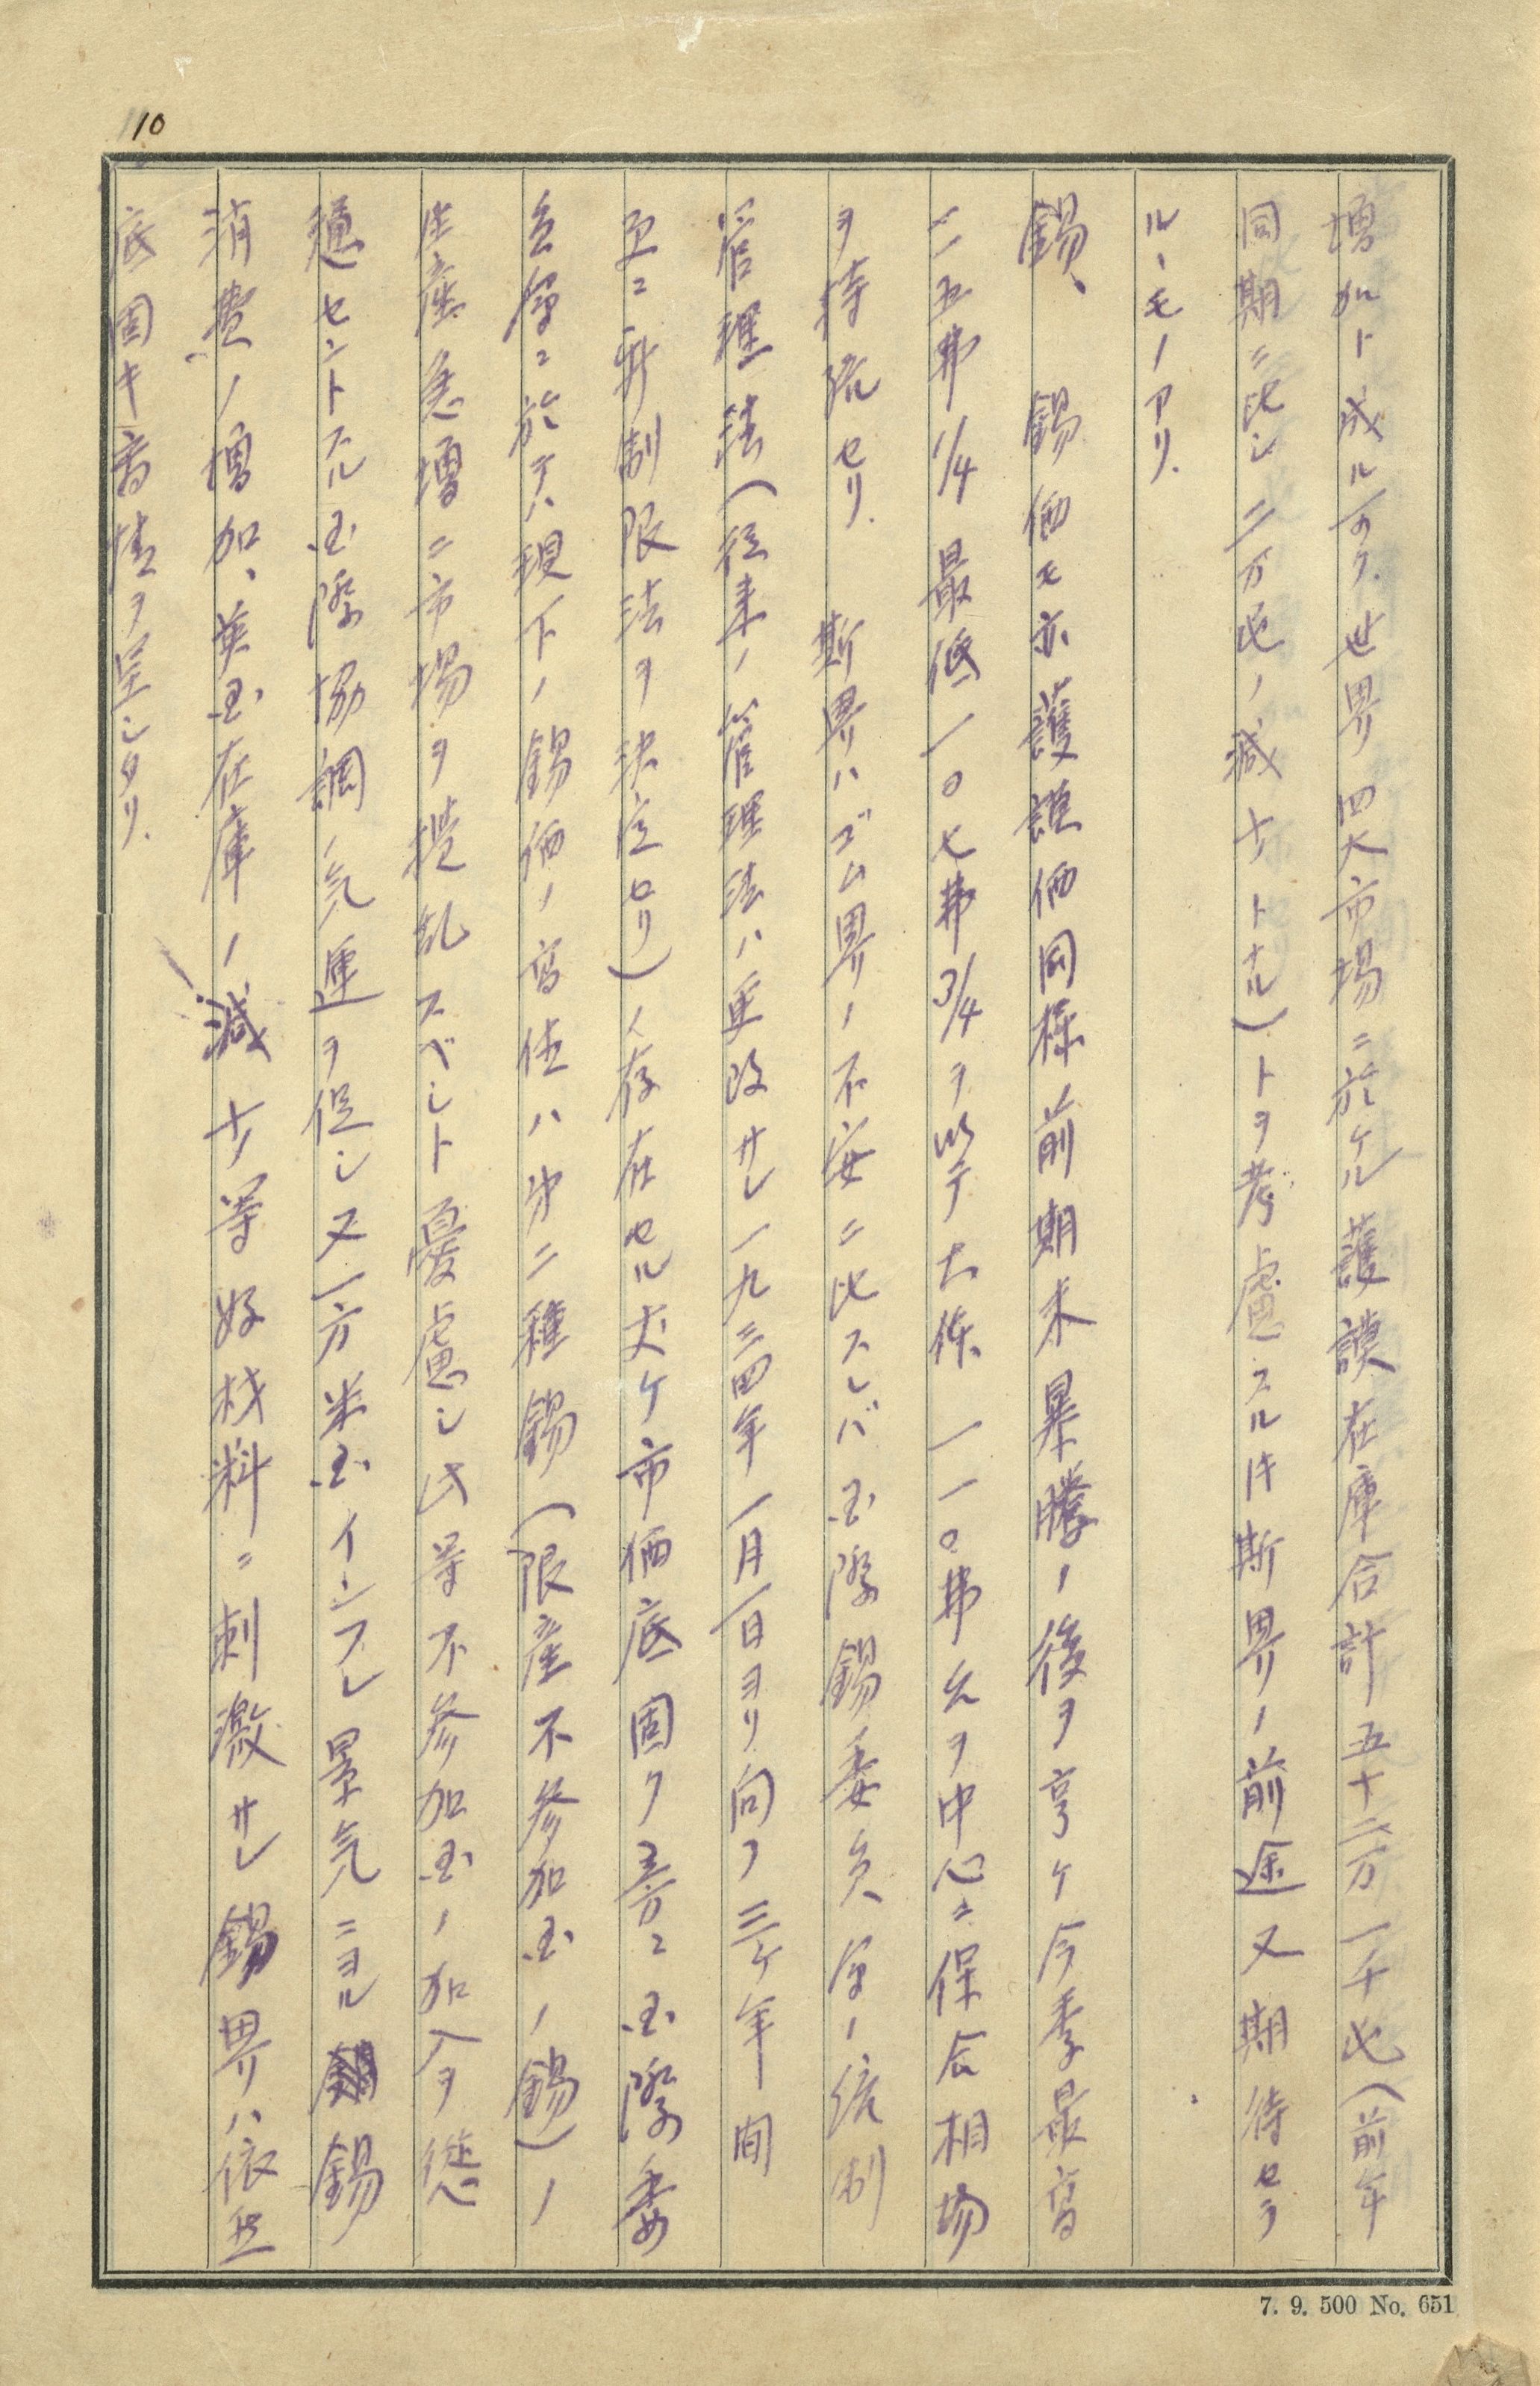 10
増加ト成ル可ク、世界四大市場ニ於ケル護謨在庫合計五十二万一千屯(前年
同期ニ比シ二万屯ノ減少トナル)トヲ考慮スル時斯界ノ前途又期待セラ
ルヽモノアリ.
錫、 錫価モ亦護謨価同様前期末暴騰ノ後ヲ享ケ今季最高
一一五弗1/4最低一〇七弗3/4ヲ以テ大体一一〇弗台ヲ中心ニ保合相場
ヲ持続セリ. 斯界ハゴム界ノ不安ニ比スレバ国際錫委員会ノ統制
管理法(従来ノ管理法ハ更改サレ一九三四年一月一日ヨリ向フ三ケ年間
更ニ新制限法ヲ決定セリ)ノ存在セル丈ケ市価底固ク 国際委
員会ニ於テハ現下ノ錫価ノ高値ハ第二種錫(限産不参加国ノ錫)ノ
生産急増ニ市場ヲ撹乱スベシト憂慮シ此等不参加国ノ加入ヲ慫
慂セントスル国際協調ノ気運ヲ促シ又一方米国インフレ景気ニヨル錫
消費ノ増加、英国在庫ノ減少等好材料ニ刺激サレ錫界ハ依然
底固キ商情ヲ呈シタリ.
7. 9. 500 No. 651